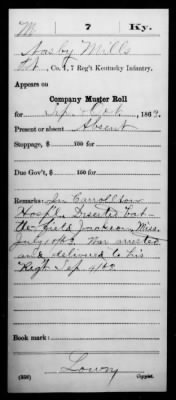 M | 7 | Ky.
Nasby Mills
Pvt., Co. I, 7 Reg't Kentucky Infantry.
Appears on
Company Muster Roll
for Sep. & Oct., 1863.
Present or absent Absent
Stoppage, $ 100 for
Due Gov't, $ 100 for
Remarks: In Carrollton
Hosp'l. Deserted
the field Jackson, Miss.
July 1863. Was arrested
and delivered to his
Reg't Sep.
Book mark:
Lowry
(858) Copyist.